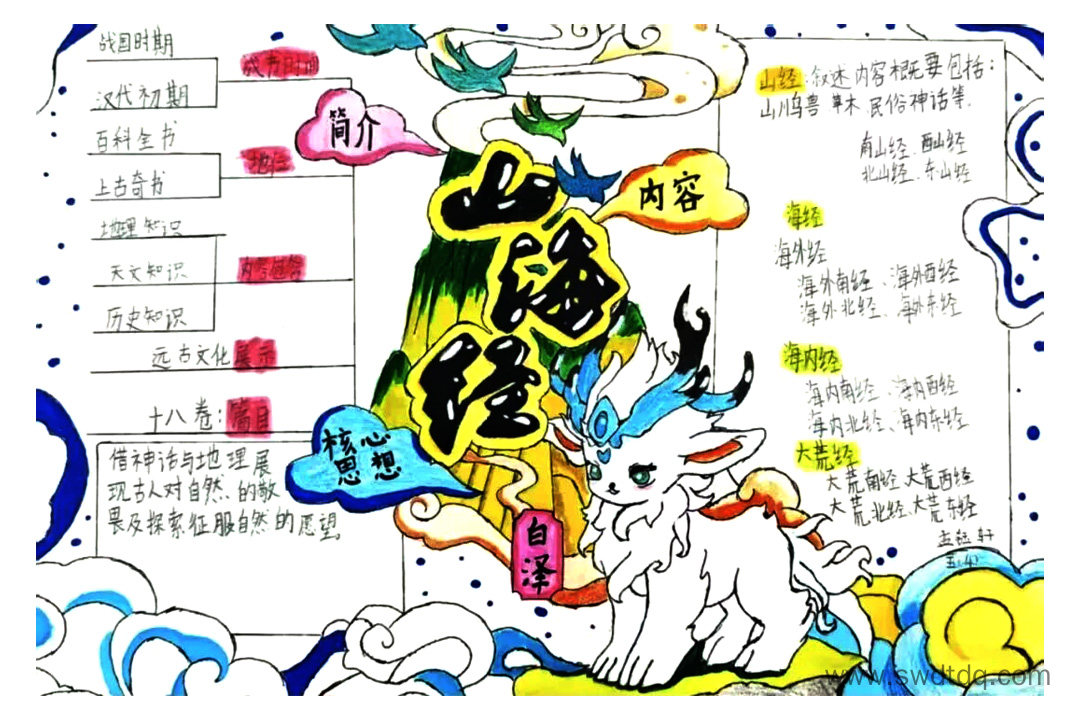 战国时期
成书时间
汉代初期
百科全书
地位
上古奇书
地理知识
天文知识
内容包含
历史知识
远古文化展示
十八卷：篇目
借神话与地理展
现古人对自然、的敬
畏及探索征服自然的愿望
简介
山海经
内容
核心
思想
白泽
山经：叙述内容概要包括：
山川鸟兽 草木 民俗神话等.
南山经、西山经
北山经、东山经
海经
海外经
海外南经、海外西经
海外北经、海外东经
海内经
海内南经、海内西经
海内北经、海内东经
大荒经
大荒南经、大荒西经
大荒北经、大荒东经
www.swdtdq.com